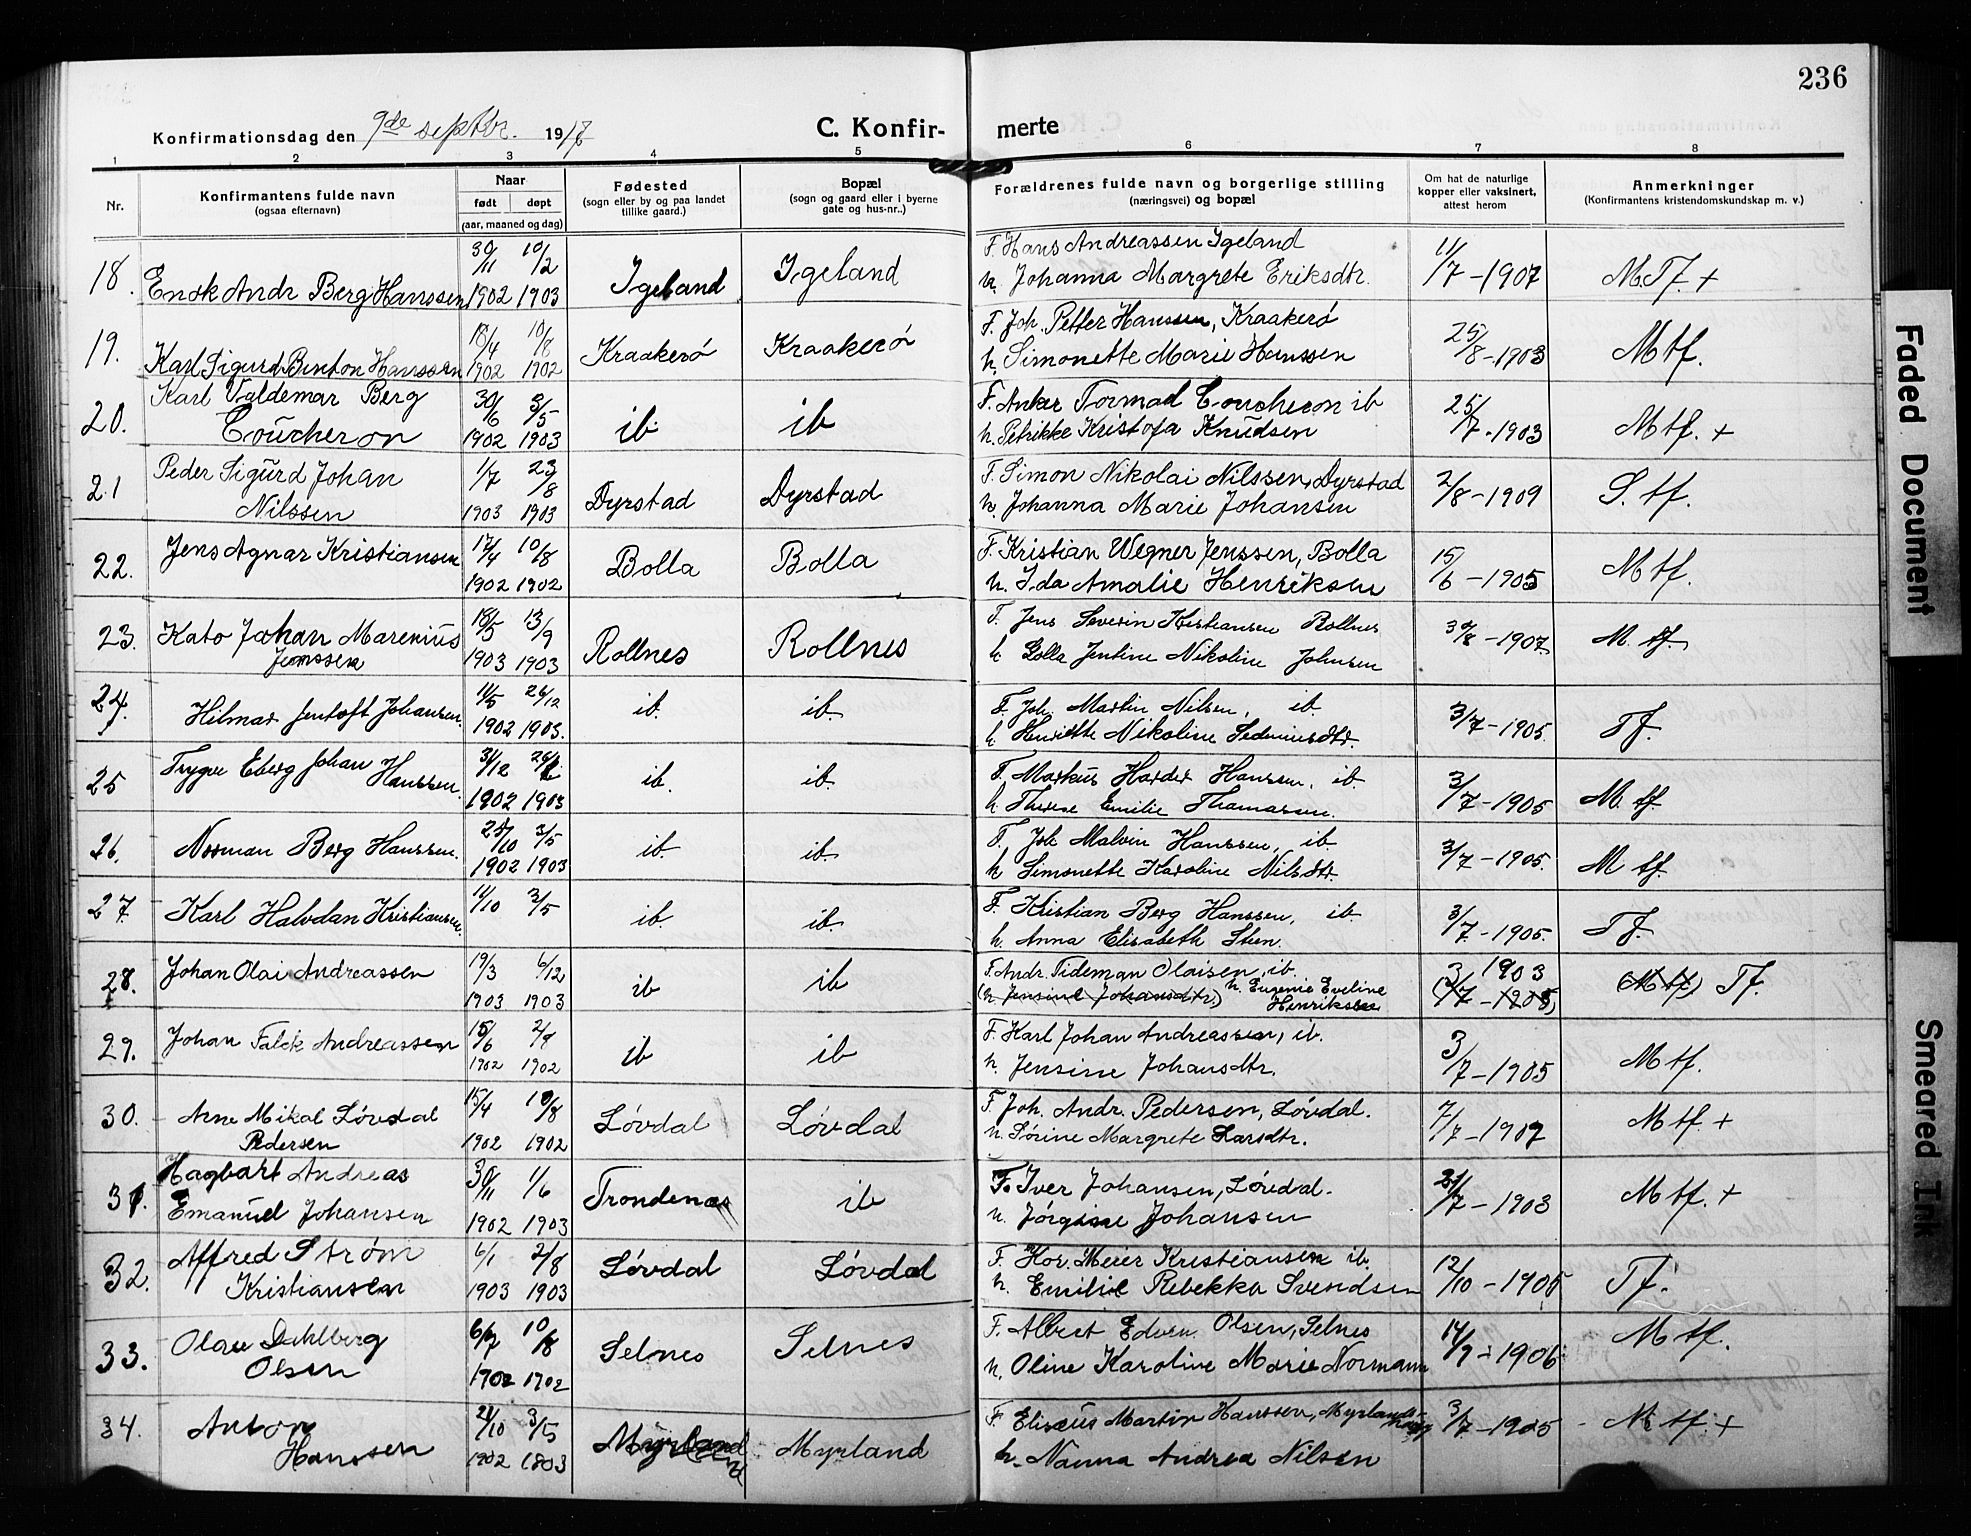 236
Konfirmationsdag den 9de septbr. 1917
C. Konfirmerte
1 2 3 4 5 6 7 8
Nr.
Konfirmantens fulde navn
(ogsaa efternavn)
Naar
født døpt
(aar, maaned og dag)
Fødested
(sogn eller by og paa landet
tillike gaard.)
Bopæl
(sogn og gaard eller i byerne
gate og hus-nr..)
Forældrenes fulde navn og borgerlige stilling
(næringsvei) og bopæl
Om hat de naturlige
kopper eller vaksinert,
attest herom
Anmerkninger
(Konfirmantens kristendomskundskap m. v.)
18. Andr Berg Hanssen 30/11 1902 10/2 1903 Igeland Igeland
F. Hans Andreassen Igeland
M. Johanna Margrete Eriksdtr. 11/7-1907 M.Tf. +
19. Karl Sigurd Hanssen 18/4 1902 10/8 1902 Kraakerø Kraakerø
F. Joh. Petter Hanssen, Kraakerø
M. Simonette Marie Hanssen 25/8-1903 Mtf.
20. Karl Valdemar Berg
Coucheron 30/6 1902 3/5 1903 ib ib
F. Anker Tormod Coucheron ib
M. Petrikke Kristofa Knudsen 25/7-1903 Mtf. +
21 Peder Sigurd Johan
Nilssen 1/7 1903 23/8 1903 Dyrstad Dyrstad
F. Simon Nikolai Nilssen, Dyrstad
M. Johanna Marie Johansen 2/8-1909 S. tf.
22. Jens Agnar Kristiansen 17/4 1902 10/8 1902 Bolla Bolla
F. Kristian Wegner Jenssen, Bolla
M. Ida Amalie Henriksen 15/6-1905 Mtf.
23. Kato Johan Marenius
Jenssen 18/5 1903 13/9 1903 Rollnes Rollnes
F. Jens Severin Kristiansen Rollnes
M. Jentine Nikoline Johnsen 1907 M. tf.
24. Hilmar Jentoft Johansen. 11/5 1902 26/12 1903. ib. ib.
F. Joh. Martin Nilsen, ib.
M. Henriette Nikoline 3/7-1905. Tf.
25 Trygve Eberg Johan Hanssen. 31/12 1902 1903 ib. ib.
F. Markus Harder Hanssen, ib
M. Therese Emilie Thomassen. 3/7-1905 M. tf.
26. Norman Berg Hanssen. 1902 3/5 1903 ib. ib.
F. Joh Malvin Hanssen, ib
M. Simonette Karoline Nilsdtr. 3/7-1905. M tf.
27. Karl Halvdan Kristiansen. 11/10 3/5 ib. ib.
F. Kristian Berg Hanssen, ib.
M. Anna Elisabeth Steen. 3/7-1905. Tf.
28. Johan Olai Andreassen 19/3 1903 6/12 1903 ib ib
F. Andr. Tideman Olaisen, ib.
(M. Jensine Johansdtr.) M. Eugenie Eveline
Henriksen 3/7 1903 (-1905) (Mtf) Tf.
29. Johan Falck Andreassen 15/6 1902 1902 ib ib
F. Karl Johan Andreassen, ib.
M. Jensine Johansdtr. 3/7-1905 Mtf.
30. Arne Mikal Løvdal
Pedersen 15/4 1902 10/8 1902 Løvdal Løvdal
F. Joh. Andr. Pedersen, Løvdal.
M. Sørine Margrete Larsdtr. 7/7-1907 Mtf. +
31. Hagbart Andreas
Emanuel Johansen 30/11 1902 1/6 1903 Trondenes ib
F. Iver Johansen, Løvdal.
M. Jørgine Johansen 7-1903 Mtf. +
32. Alfred Strøm
Kristiansen 6/1 1903 2/8 1903 Løvdal Løvdal
F. Hor. Meier Kristiansen ib.
M. Emilie Rebekka Svendsen 12/10-1905 Tf.
33. Olav Dahlberg
Olsen 1902 10/8 1902 Selnes Selnes
F. Albert Edvin Olsen, Selnes
M. Oline Karoline Marie Normann 1906 Mtf.
34. Anton
Hanssen 1902 3/5 1903 Myrland Myrland
F. Eliseus Martin Hanssen,
M. Nanna Andrea Nilsen 3/7-1905 Mtf. +
Faded Document
Smeared Ink